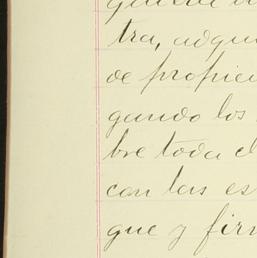 tra, adqui
de propie
gando los
bre toda el
con las es
que y fir